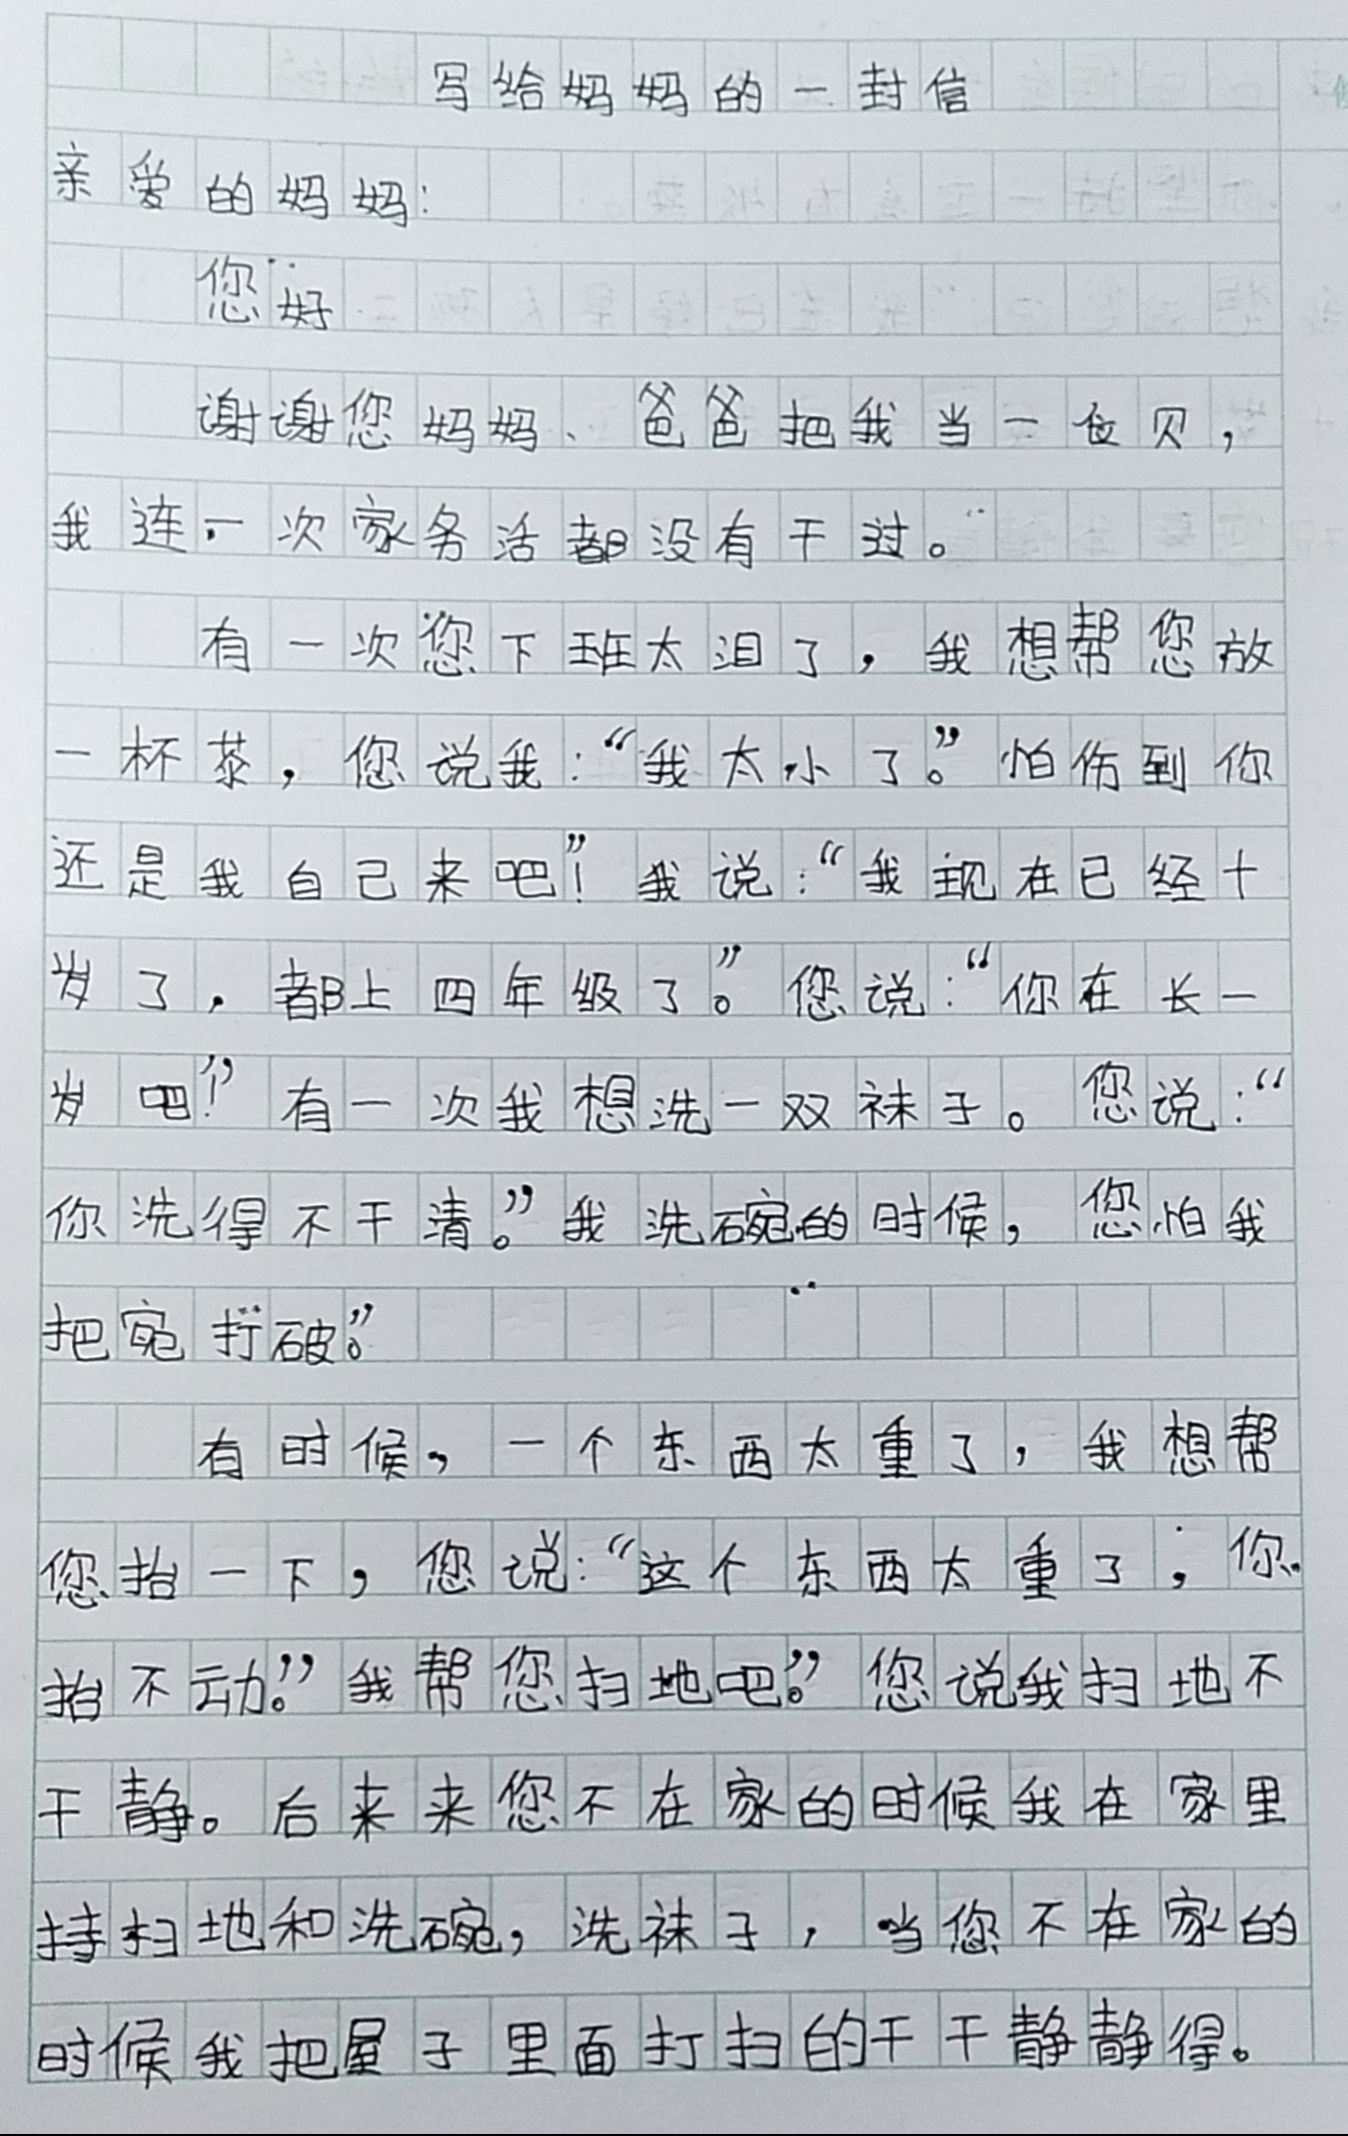 写给妈妈的一封信
亲爱的妈妈:
您好
谢谢您妈妈、爸爸把我当一贝,
我连一次家务活都没有干过。
有一次您下班太泪了,我想帮您放
一杯茶,您说我:“我太小了。”怕伤到你
还是我自己来吧”!我说:“我现在已经十
岁了,都上四年级了。”您说:“你在长一
岁吧!”有一次我想洗一双袜子。您说:“
你洗得不干清。”我洗碗的时候,您怕我
把宛打破”。
有时候,一个东西太重了,我想帮
您抬一下,您说:“这个东西太重了,你
抬不动。”我帮您扫地吧。”您说我扫地不
干静。后来来您不在家的时候我在家里
持扫地和洗碗,洗袜子,当您不在家的
时候我把屋子里面打扫的干干静静得。